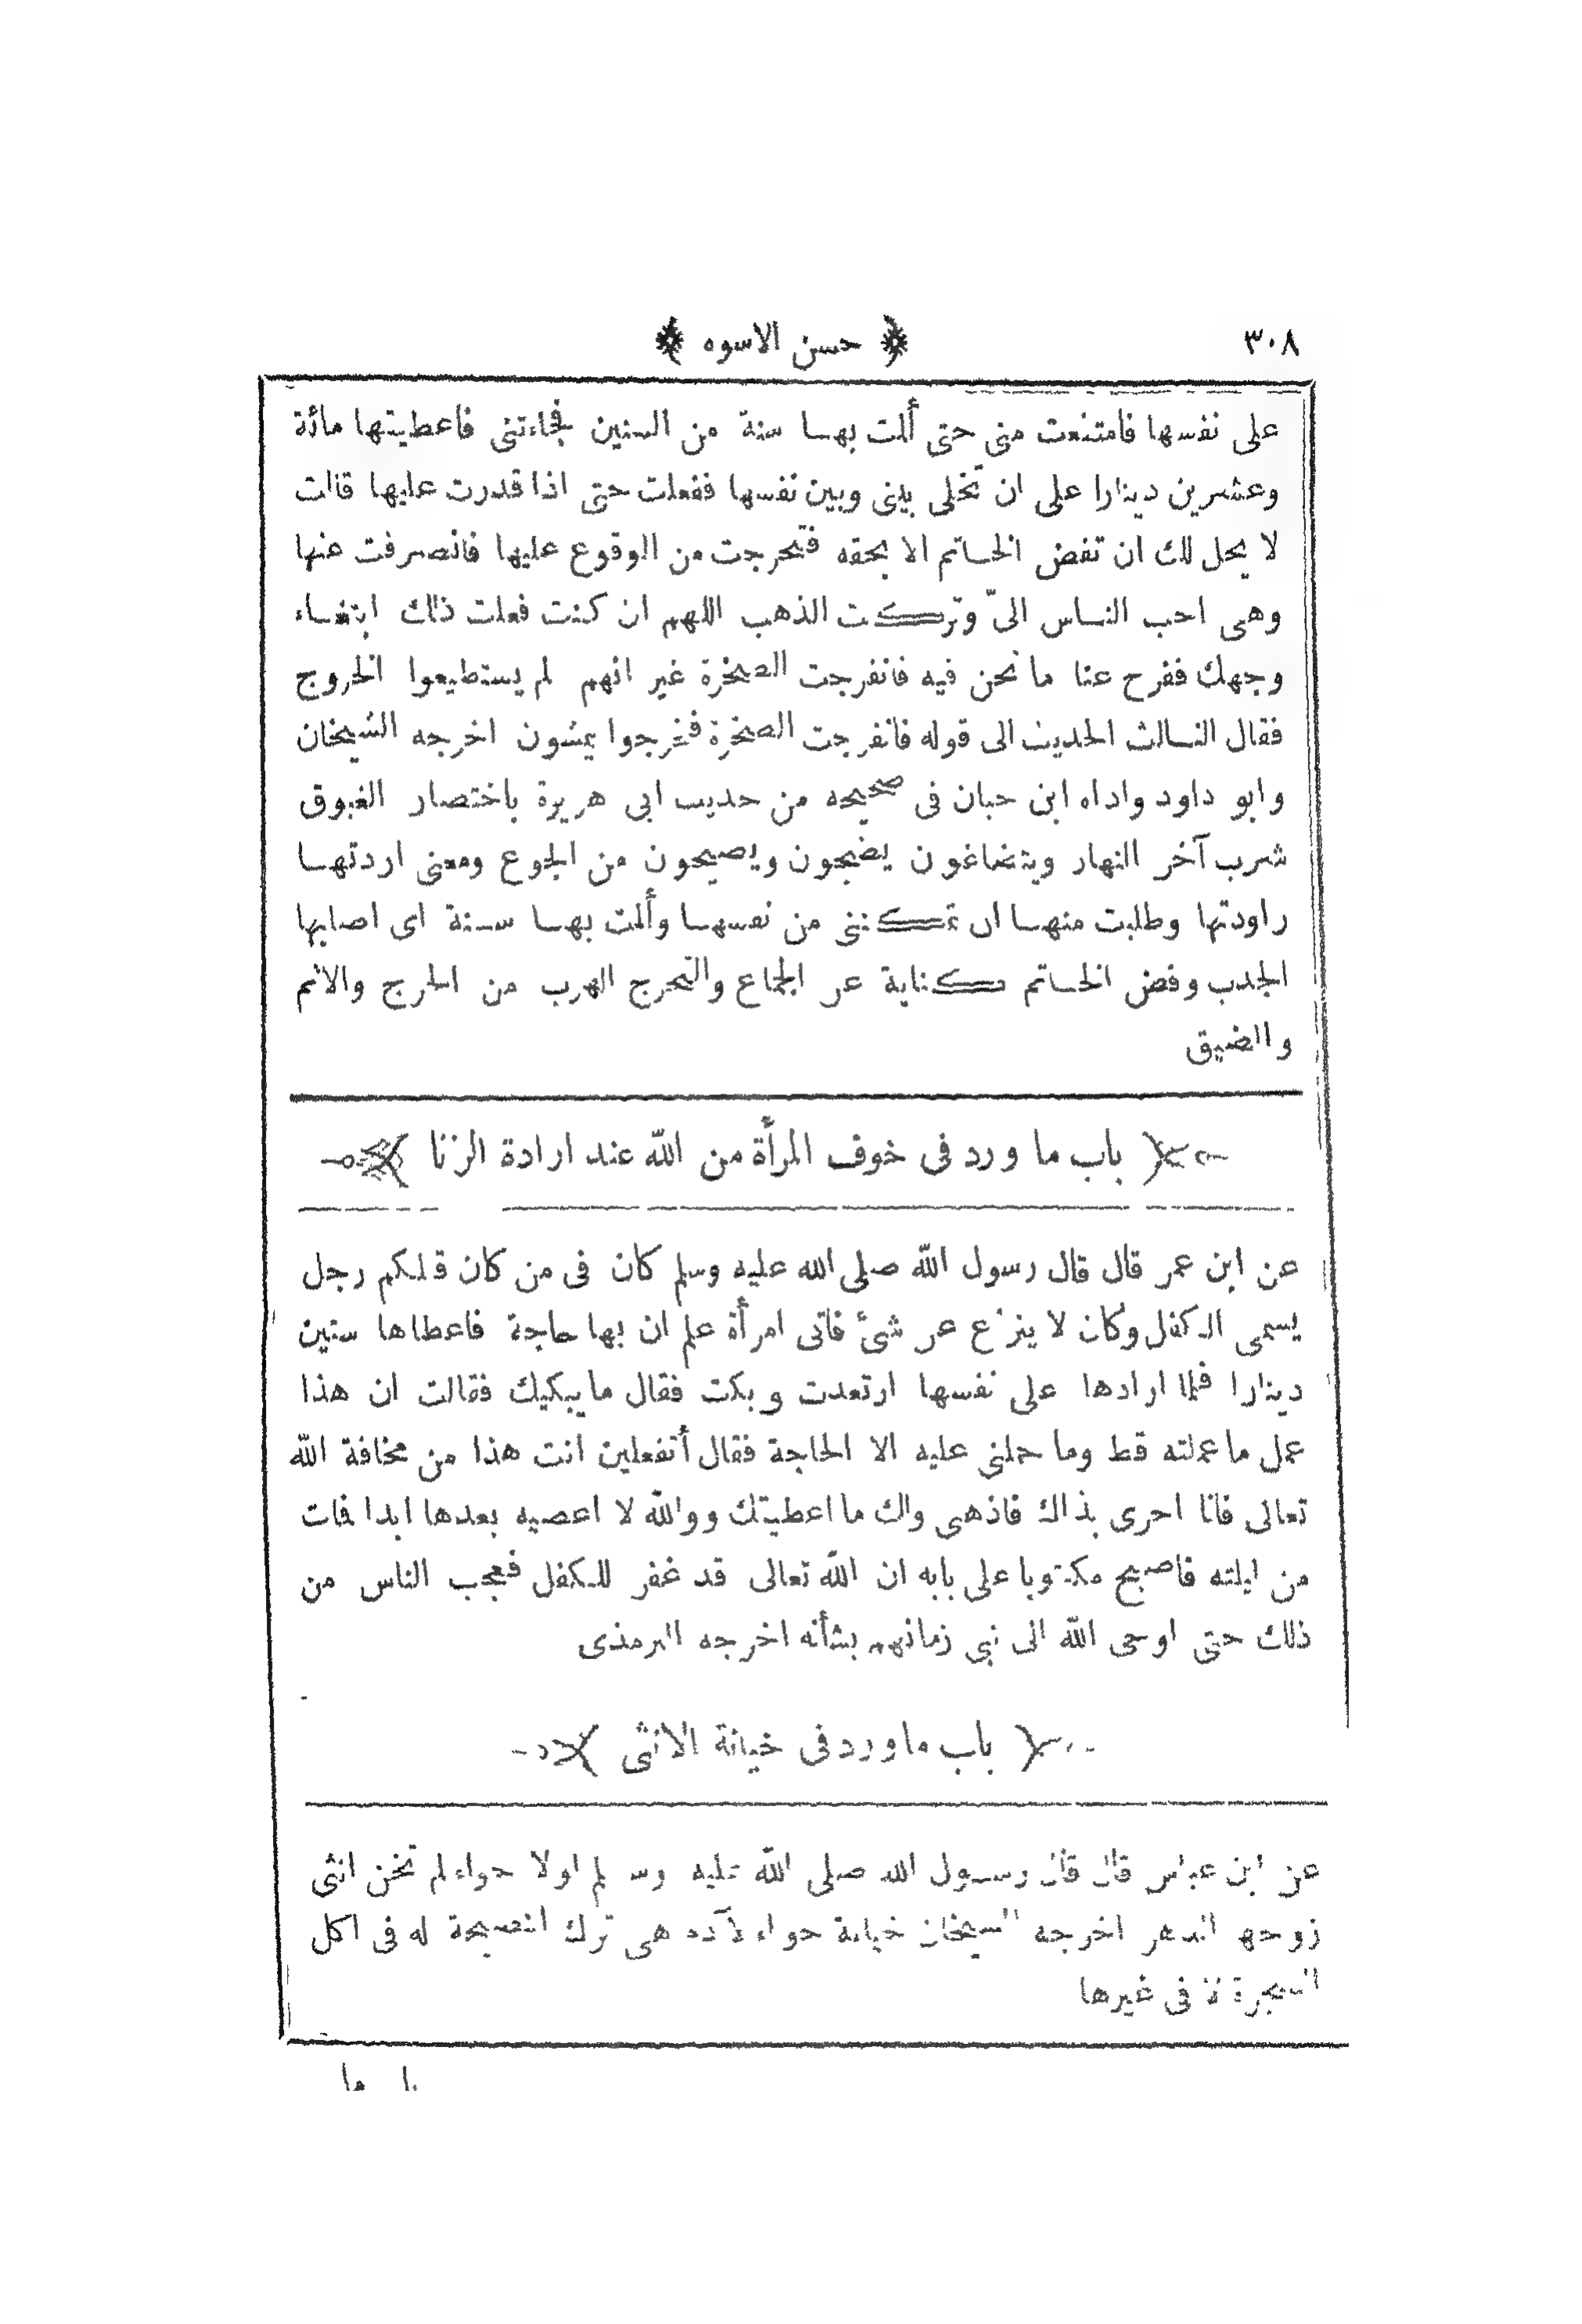 ٣٠٨
﴿ حسن الاسوه ﴾
على نفسها فامتنعت منى حتى ألمت بهسا سنة من السنين فجاءتنى فاعطيتها مائة
وعشرين دينارا على ان تخلى بينى وبين نفسها ففعلت حتى اذا قدرت عليها قالت
لا يحل لك ان تفض الخساتم الا بحقه فتحرجت من الوقوع عليها فانصرفت عنها
وهى احب النساس الىّ وتركت الذهب اللهم ان كنت فعلت ذلك ابتغساء
وجهك ففرج عنا ما نحن فيه فانفرجت الصخرة غير انهم لم يستطيعوا الخروج
فقال الثسالث الحديث الى قوله فانفرجت الصخرة فخرجوا يمشون اخرجه الشيخان
وابو داود واداه ابن حبان فى صحيحه من حديث ابى هريرة باختصار الغبوق
شرب آخر النهار ويتضاغون يضجون ويصيحون من الجوع ومعنى اردتهسا
راودتها وطلبت منهسا ان تمكننى من نفسهسا وألمت بهسا سنة اى اصابها
الجدب وفض الخساتم كناية عن الجماع والتحرج الهرب من الحرج والاثم
والضيق
﴿ باب ما ورد فى خوف المرأة من الله عند ارادة الزنا ﴾
عن ابن عمر قال قال رسول الله صلى الله عليه وسلم كان فى من كان قبلكم رجل
يسمى الكفل وكان لا ينزع عن شئ فاتى امرأة علم ان بها حاجة فاعطاها ستين
دينارا فلما ارادها على نفسها ارتعدت وبكت فقال ما يبكيك فقالت ان هذا
عمل ما عملته قط وما حملنى عليه الا الحاجة فقال أتفعلين انت هذا من مخافة الله
تعالى فانا احرى بذلك فاذهبى ولك ما اعطيتك ووالله لا اعصيه بعدها ابدا فات
من ليلته فاصبح مكتوبا على بابه ان الله تعالى قد غفر للكفل فعجب الناس من
ذلك حتى اوحى الله الى نبى زمانهم بشأنه اخرجه الترمذى
﴿ باب ما ورد فى خيانة الانثى ﴾
عن ابن عباس قال قال رسول الله صلى الله عليه وسلم لولا حواء لم تخن انثى
زوجها الدهر اخرجه الشيخان خيانة حواء لآدم هى ترك النصيحة له فى اكل
الشجرة لا فى غيرها